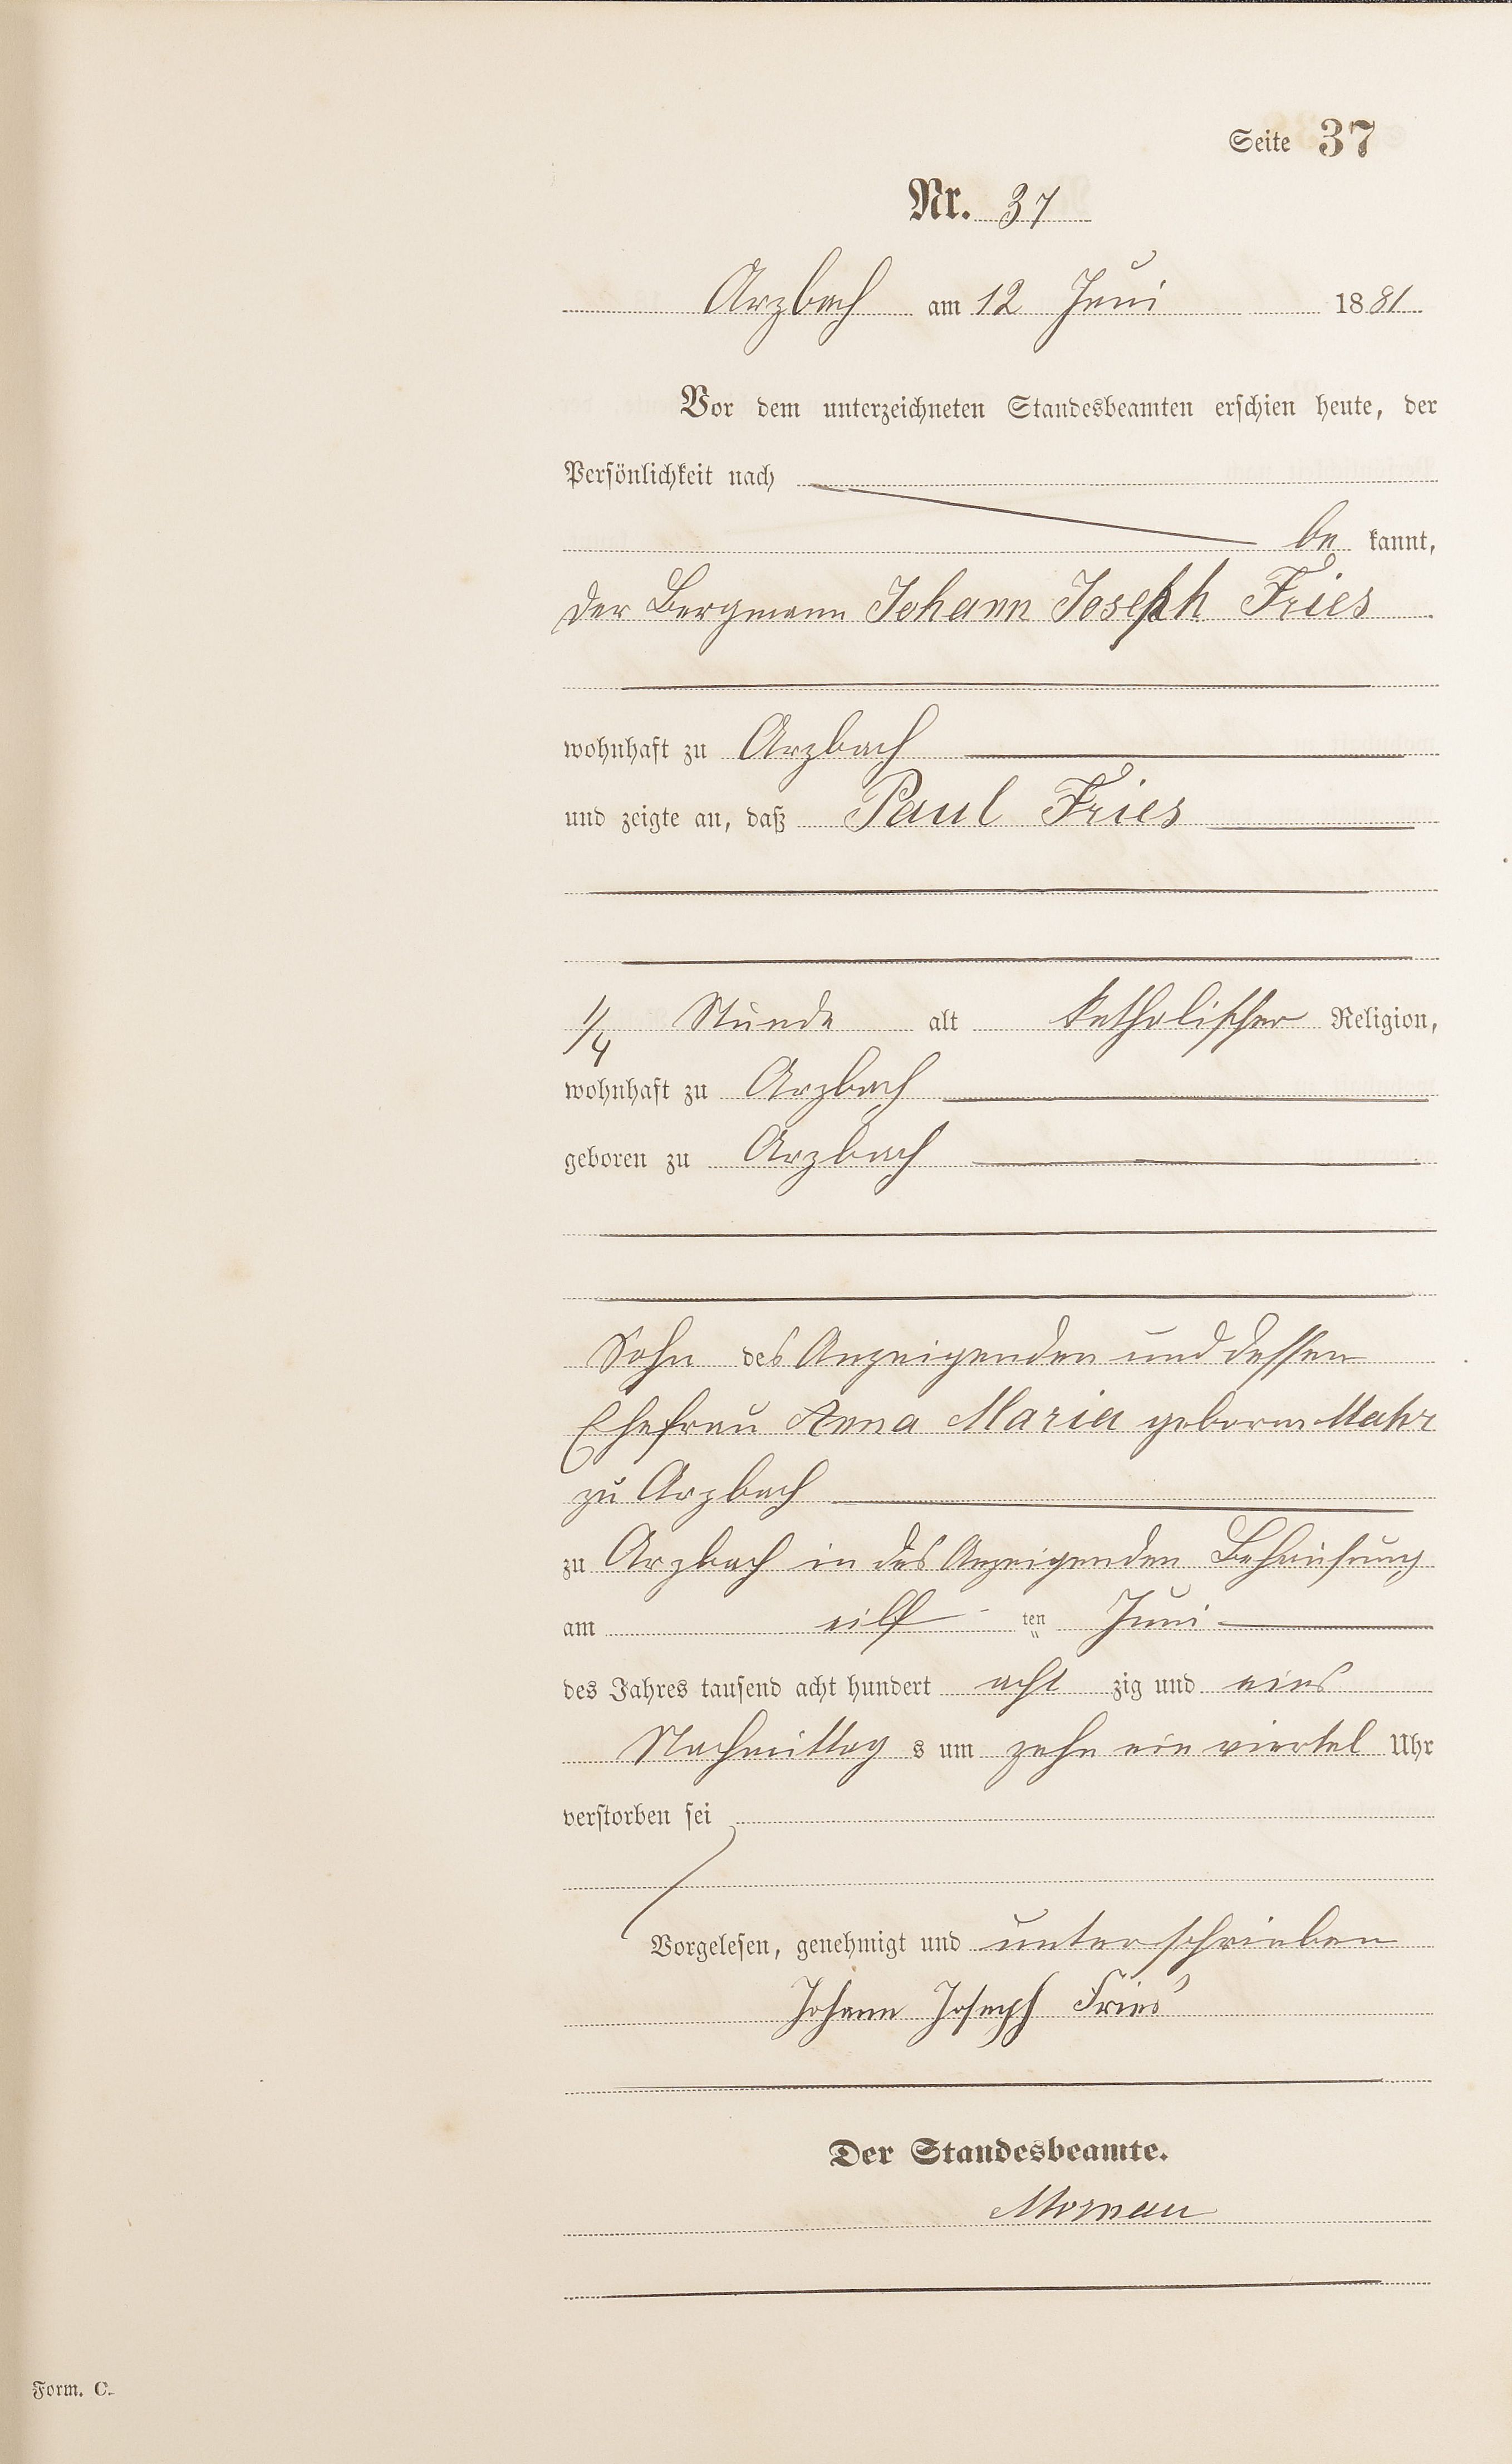 Seite 37
Nr. 37
Arzbach am 12 Juni 1881
Vor dem unterzeichneten Standesbeamten erschien heute, der
Persönlichkeit nach
be kannt,
der Bergmann Johann Joseph Fries
wohnhaft zu Arzbach
und zeigte an, daß Paul Fries
1/4 Stunde alt katholischer Religion,
wohnhaft zu Arzbach
geboren zu Arzbach
Sohn des Anzeigenden und dessen
Ehefrau Anna Maria geborne Mahr
zu Arzbach
zu Arzbach in des Anzeigenden Behausung
am eilf ten Juni
des Jahres tausend acht hundert acht zig und eins
Nachmittag s um zehn ein viertel Uhr
verstorben sei
Vorgelesen, genehmigt und unterschrieben
Johann Joseph Fries
Der Standesbeamte.
Form. C.